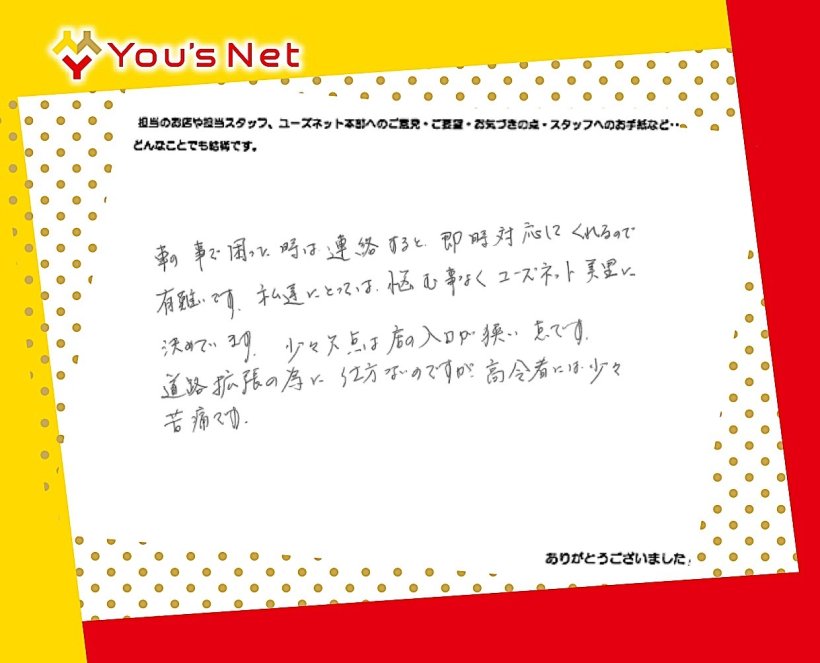 You's Net
担当のお店や担当スタッフ、ユーズネット本部へのご意見・ご要望・お気づきの点・スタッフへのお手紙など・・
どんなことでも結構です。
車の事で困った時は連絡すると、即時対応してくれるので
有難いです。私達にとっては、悩む事なくユーズネット美里に
決めています。少々欠点は店の入口が狭い点です。
道路拡張の為に仕方ないのですが、高令者には少々
苦痛です。
ありがとうございました。